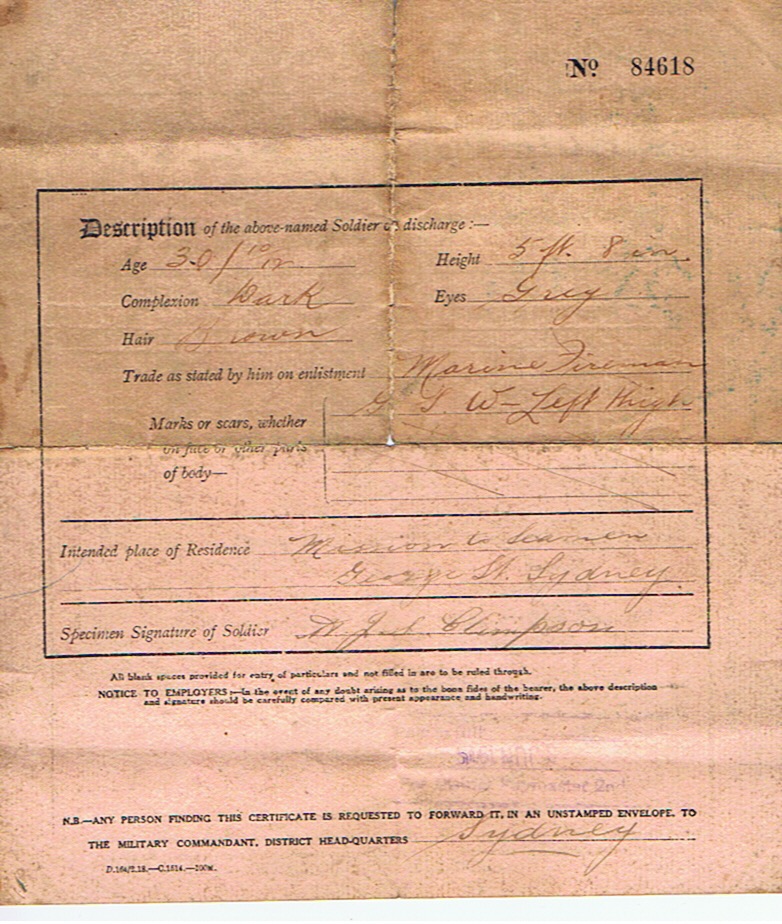 No 84618
Description of the above-named Soldier on discharge :—
Age 30 10/12 Height 5 ft. 8 in.
Complexion Dark Eyes Grey
Hair Brown
Trade as stated by him on enlistment Marine Fireman
Marks or scars, whether G. S. W – Left Thigh
on face or other parts
of body—
Intended place of Residence Mission to Seamen
George St. Sydney.
Specimen Signature of Soldier Climpson
All blank spaces provided for entry of particulars and not filled in are to be ruled through.
NOTICE TO EMPLOYERS :—In the event of any doubt arising as to the bona fides of the bearer, the above description
and signature should be carefully compared with present appearance and handwriting.
N.B.—ANY PERSON FINDING THIS CERTIFICATE IS REQUESTED TO FORWARD IT, IN AN UNSTAMPED ENVELOPE, TO
THE MILITARY COMMANDANT, DISTRICT HEAD-QUARTERS Sydney
D.164/2.18.—C.1514.—200M.